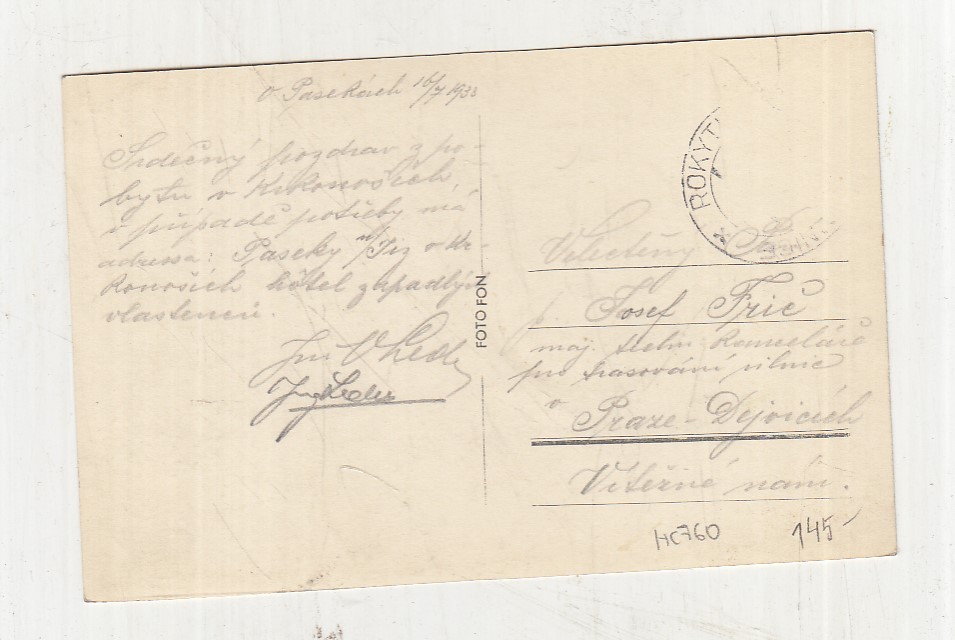 v Pasekách 16/7 1938
Srdečný pozdrav z po-
bytu v Krkonoších
v případě potřeby má
adressa: Paseky n/Jiz v Kr-
konoších hôtel zapadlých
vlastenců.
Ing
Ing
FOTO FON
ROKYT
Velectěný Pán
p. Josef Frič
maj. techn. kanceláře
pro trasování silnic
v
Praze-Dejvicích
Vítězné nám.
HC760
145-